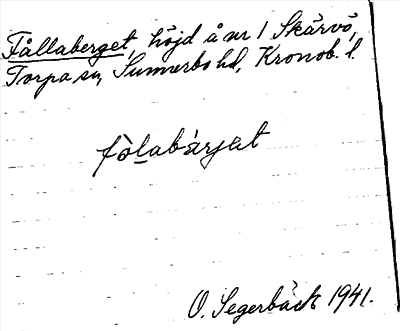 Fållaberget, höjd å nr 1 Skärvö,
Torpa sn, Sunnerbo hd, Kronob. l.
fòlabárjat
O. Segerbäck 1941.